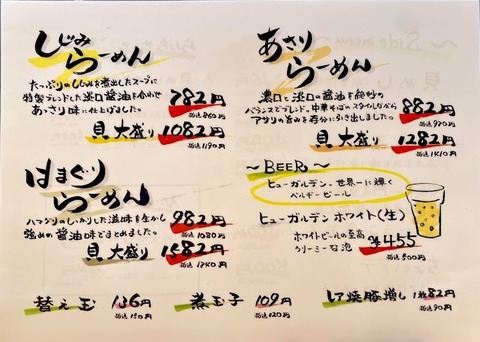 しじみ
らーめん
たっぷりのしじみを煮出したスープに
特製ブレンドした淡口醤油を合わせ
あっさり味に仕上げました。
782円
税込860円
貝大盛り 1082円
税込1190円
はまぐり
らーめん
ハマグリのしっかりした滋味を生かし
強めの醤油味でまとめました。
982円
税込1080円
貝大盛り 1582円
税込1740円
あさり
らーめん
濃口と淡口の醤油を絶妙の
バランスでブレンド。中華そばのスタイルながら
アサリの旨みを存分に引き出しました。
882円
税込970円
貝大盛り 1282円
税込1410円
～BEER～
ヒューガルデン、世界一に輝く
ベルギービール
ヒューガルデン ホワイト(生)
ホワイトビールの至高
クリーミーな泡
¥455
税込500円
替え玉 136円
税込150円
煮玉子 109円
税込120円
レア焼豚増し 1枚82円
税込90円